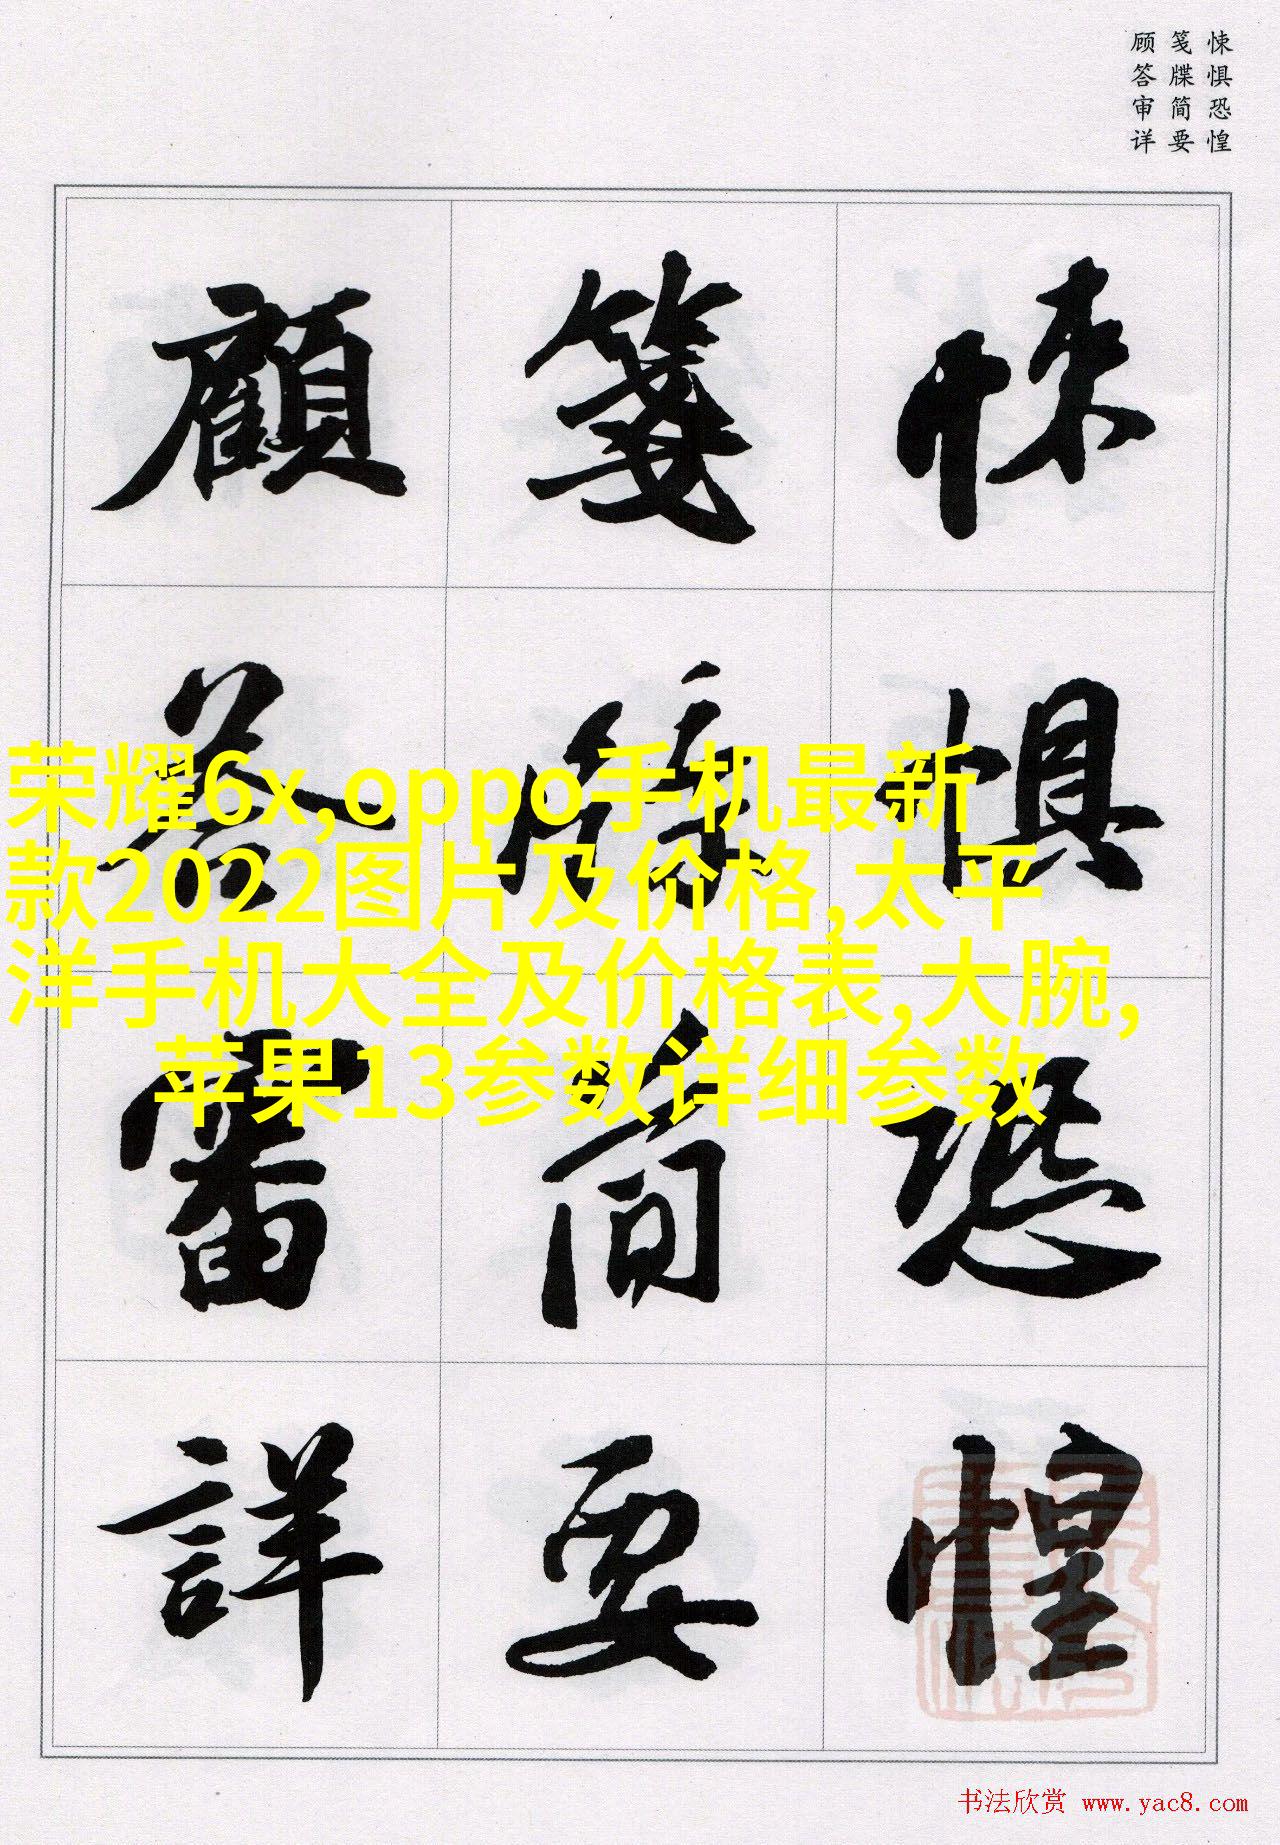 悚惧恐惶
笺牒简要
顾答审详
悚惧恐惶
笺牒简要
顧答審詳
荣耀6x,oppo手机最新
款2022图片及价格,太平
洋手机大全及价格表,大腕,
苹果13参数详细参数
书法欣赏 www.yac8.com